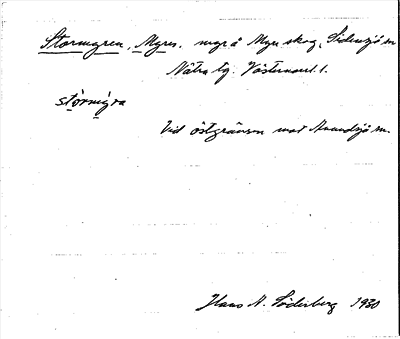 Stormyren, Myres. myr å Myre skog, Sidensjö sn
Nätra tg. Västernorrl. l.
stòrmýra
Vid östgränsen mot Anundsjö sn.
Hans N. Söderberg 1930